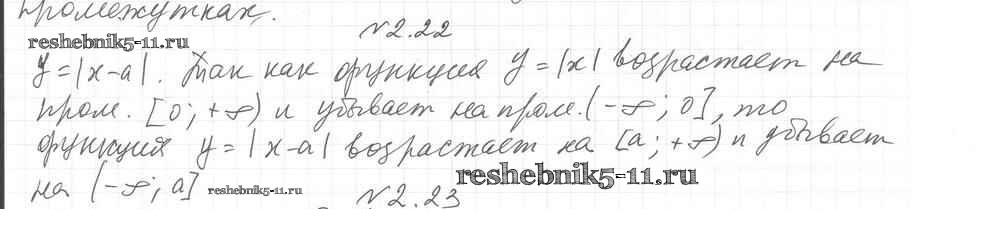 промежутках.
№2.22
reshebnik5-11.ru
y = |x-a|. Так как функция y = |x| возрастает на
пром. [0; +∞) и убывает на пром. (-∞; 0], то
функция y = |x-a| возрастает на [a; +∞) и убывает
на (-∞; a]
reshebnik5-11.ru
reshebnik5-11.ru
№2.23